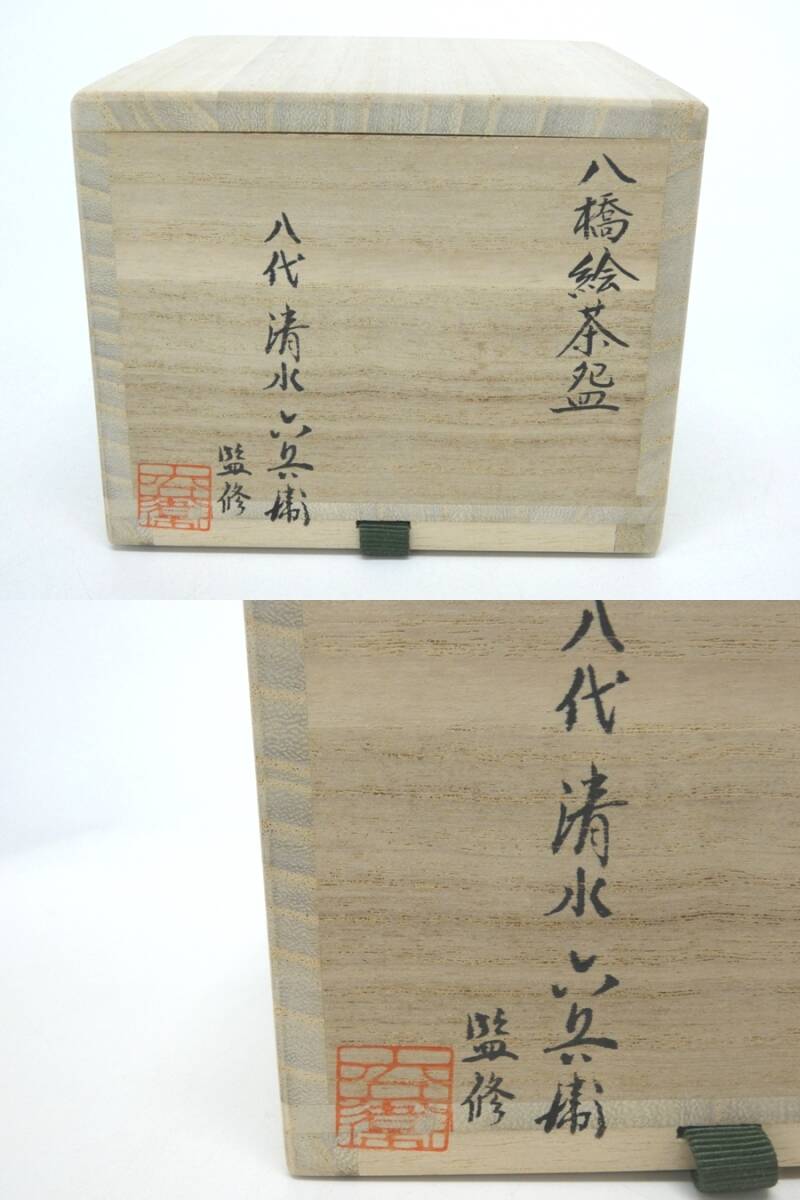 八橋絵茶盌
八代 清水六兵衛
監修
八代 清水六兵衛
監修